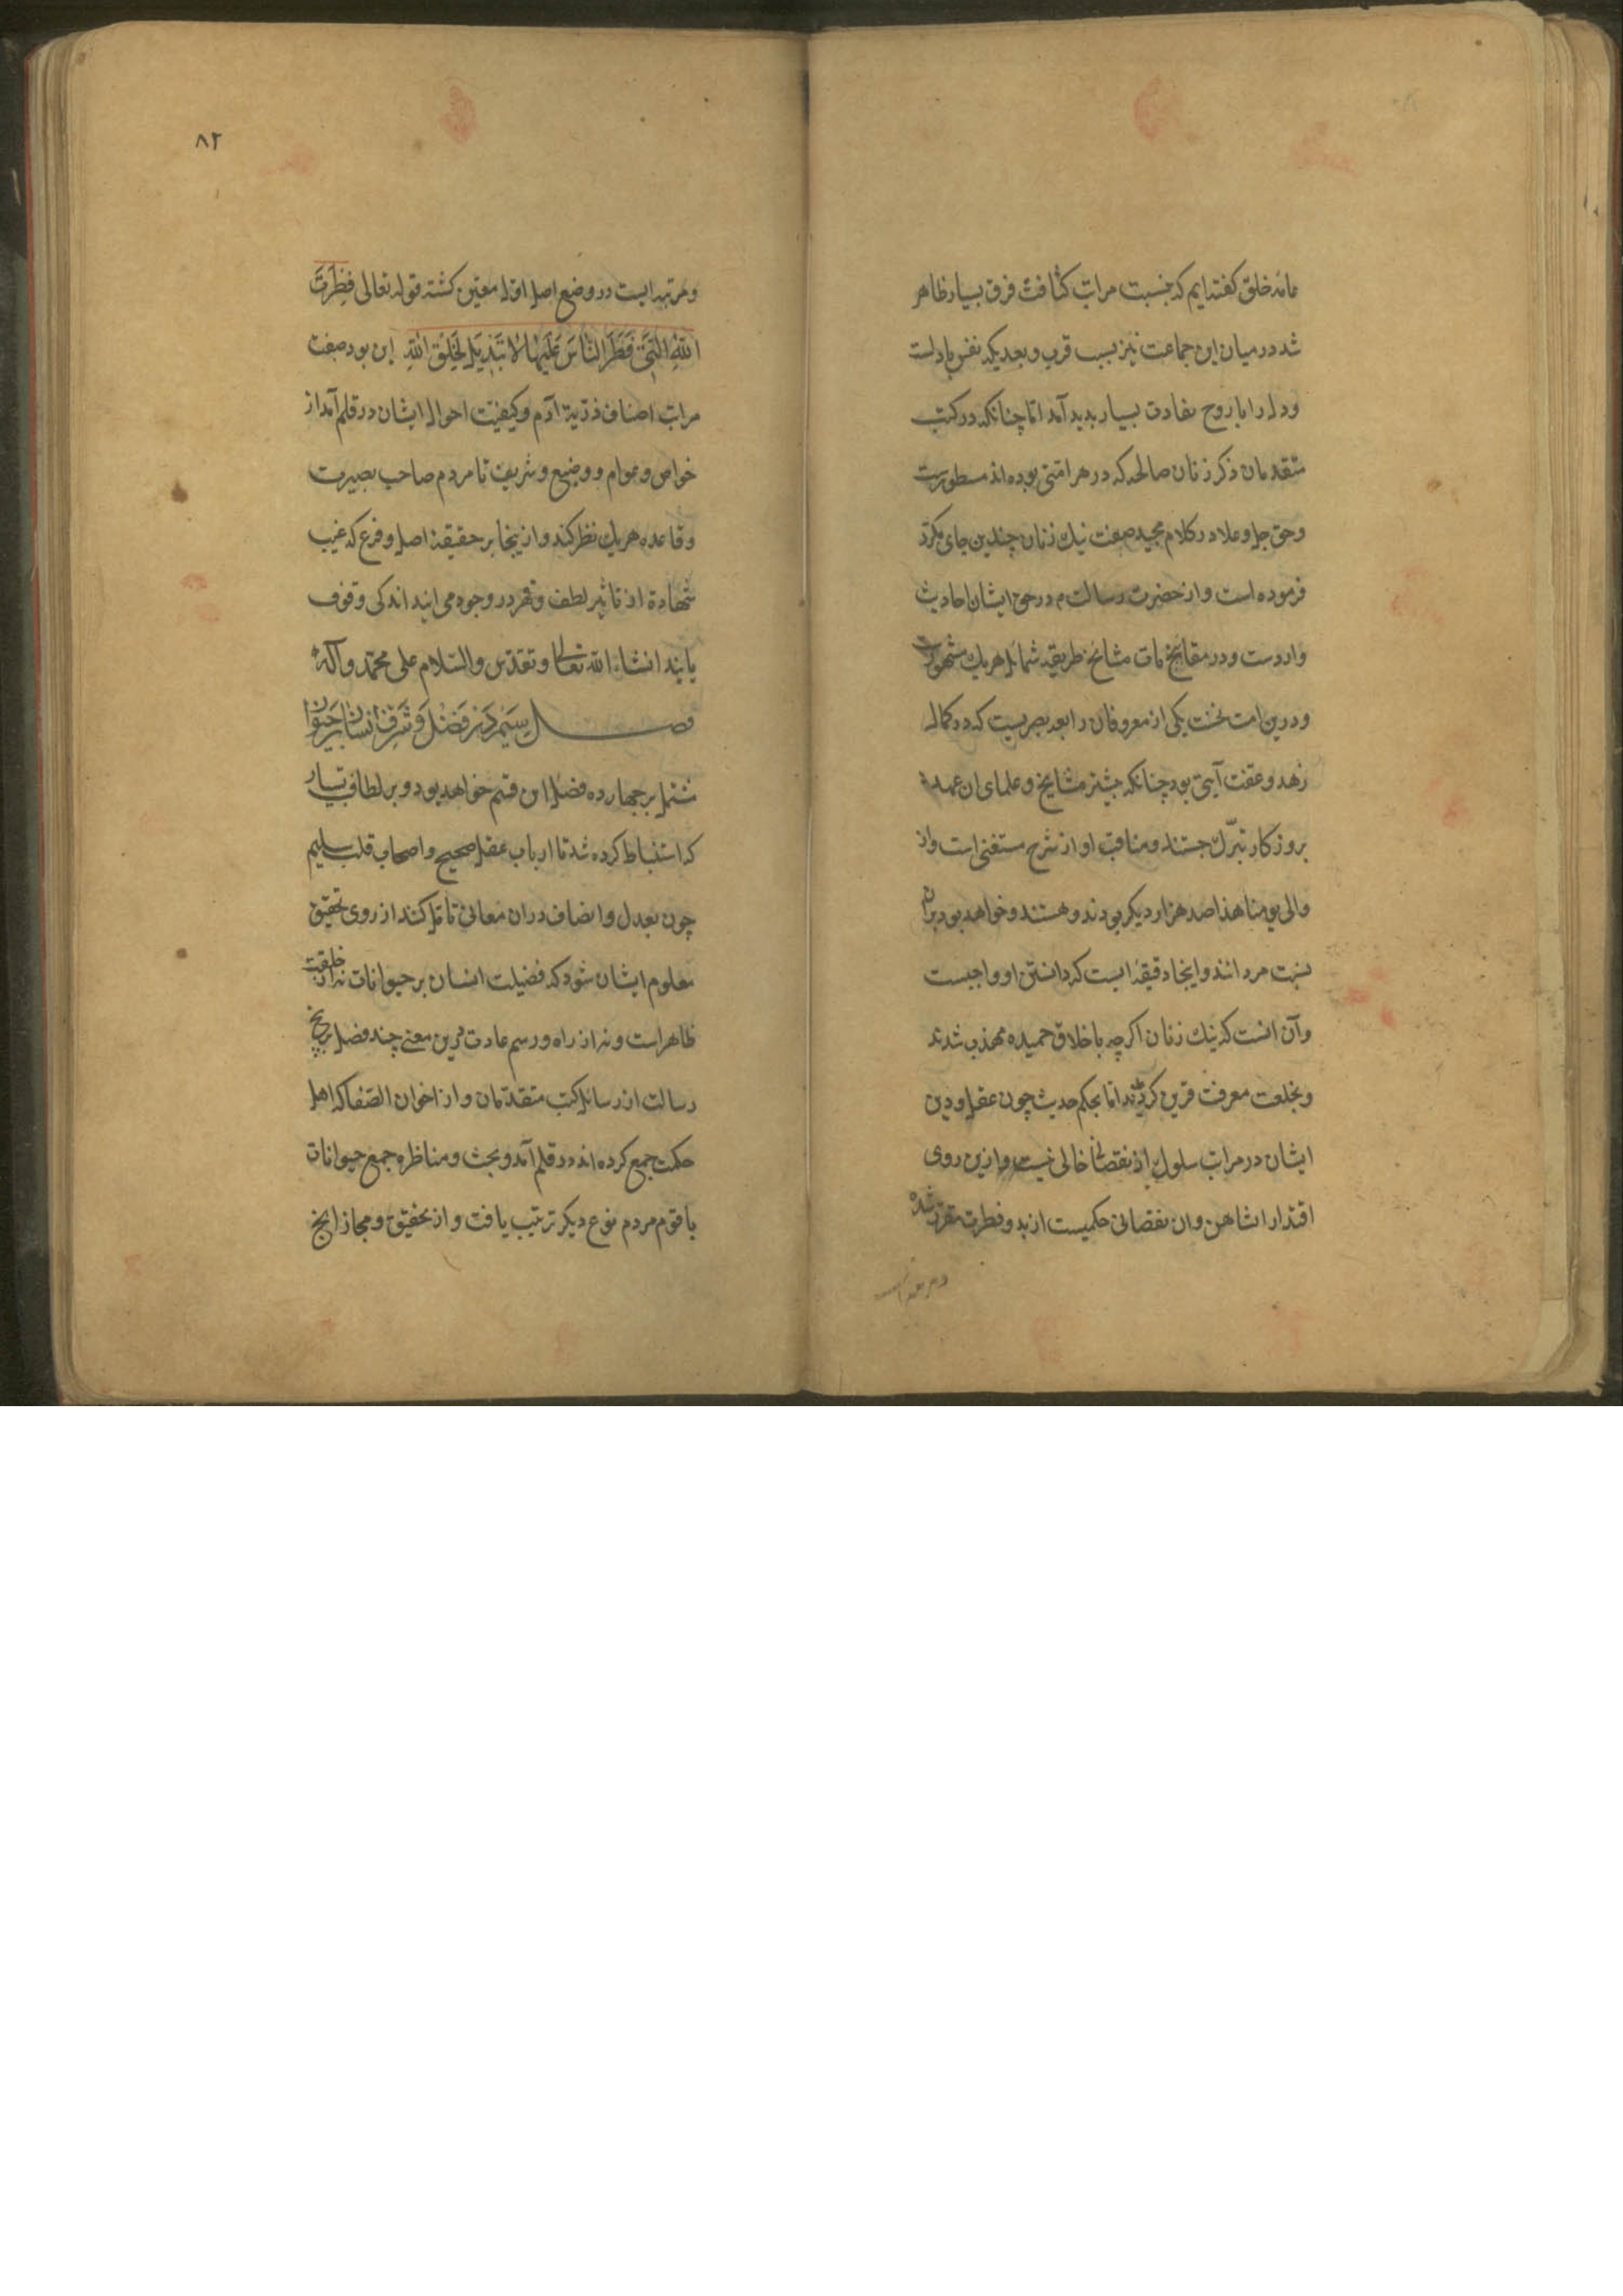 مانه خلق گفته ایم که بنسبت مراتب کثافت فرق بسیار ظاهر
شد در میان این جماعت نیز بسبب قرب و بعد یکه نفس با دلست
و دل را با روح تفاوت بسیار بدید آمد اما چنانکه در کتب
متقدمان ذکر زنان صالحه که در هر امتی بوده اند مسطورست
و حق جل و علا در کلام مجید صفت نیک زنان چندین جای مکرر
فرموده است و از حضرت رسالت م در حق ایشان احادیث
واردست و در مشایخ طریقه شمایل هر یک مشهورست
و درین امت نخست یکی از معروفان رابعه بصریست که در کمال
زهد و عفت آیتی بود چنانکه بیشتر مشایخ و علمای ان عهد
بروزکار تبرک جستند و مناقب او از شرح مستغنی است و از
والی یومنا هذا صد هزار دیکر بودند و هستند و خواهد بود بران
نهت مردانند و اینجا دقیقه ایست که دانستن او واجبست
وآن انست که نیک زنان اکرچه باخلاق حمیده مهذب شدند
و بخلعت معرفت قرین کردند اما بحکم حدیث چون عقل و دین
ایشان در مراتب سلوک از نقصانی خالی نیست و ازین روی
اقتدار را نشاهن و ان نقصانی حکمیست از بدو فطرت مقرر شده
و مرتبه است
۸۲
و مرتبه ایست در وضع اصل اول معین کشته قوله تعالی فِطْرَتَ
اللهِ الَّتِی فَطَرَ النَّاسَ عَلَیْهَا لَا تَبْدِیلَ لِخَلْقِ اللهِ این بود صفت
مراتب اصناف ذریة آدم و کیفیت احوال ایشان در قلم آمد از
خواص و عوام و وضیع و شریف تا مردم صاحب بصیرت
و قاعده هر یک نظر کند و ازینجا بر حقیقة اصل و فرع که غیب
شهادة از تاثیر لطف و قهر در وجود می ایند اندکی وقوف
یابند انشاء الله تعالی و تقدس والسلام علی محمد وآله
فصل سیم در فضل و شرف انسان بر حیوان
مشتمل بر چهارده فصل این قسم خواهد بود و بر لطایف بسیار
که استنباط کرده شد تا ارباب عقل صحیح و اصحاب قلب سلیم
چون بعدل و انصاف دران معانی تامل کنند از روی تحقیق
معلوم ایشان شود که فضیلت انسان بر حیوانات نه از خلقت
ظاهر است و نه از راه و رسم عادت درین معنی چند فصل بر پنج
رسالت از رسایل کتب متقدمان و از اخوان الصفا که اهل
حکمت جمع کرده اند در قلم آمد و بحث و مناظره جمع حیوانات
با قوم مردم نوع دیکر ترتیب یافت و از تحقیق و مجاز انچ